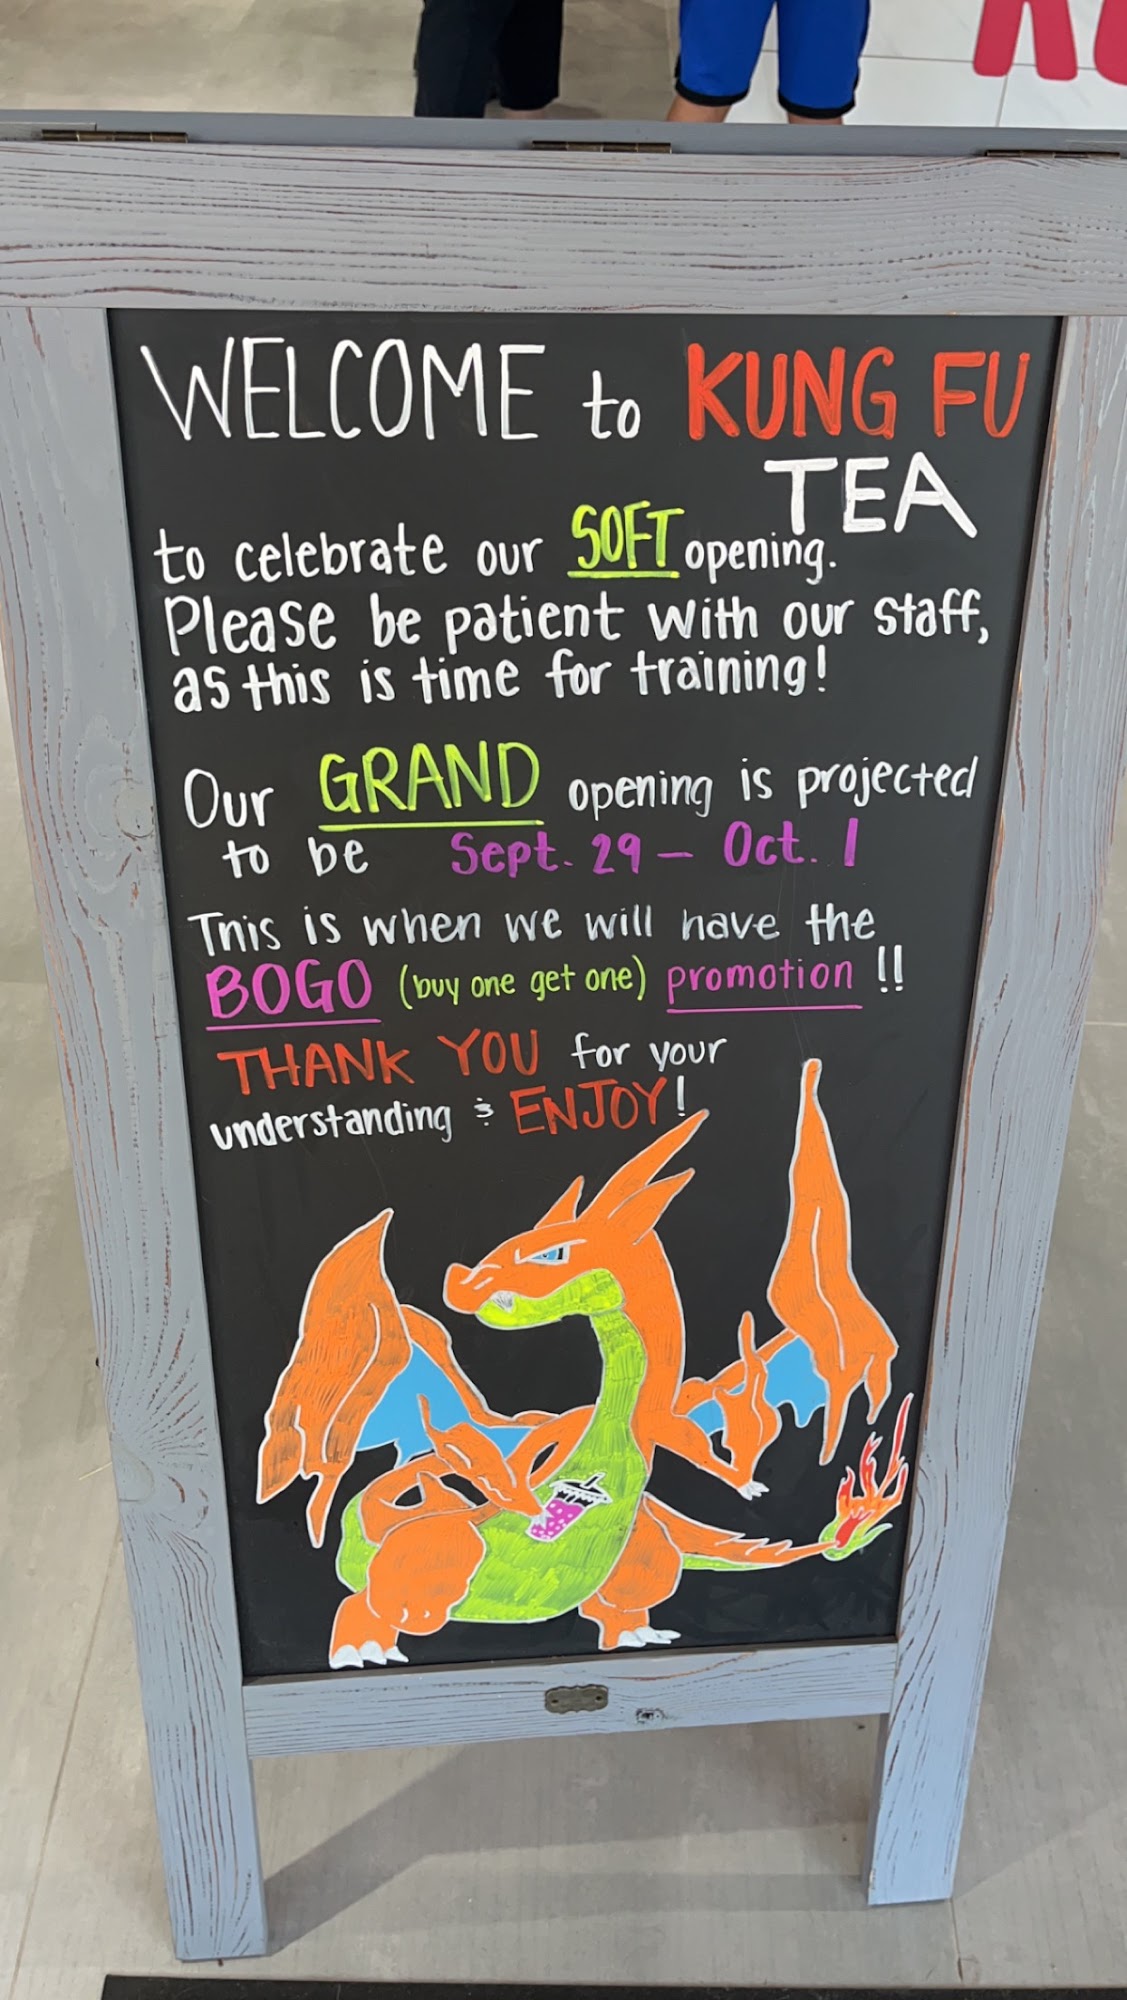 WELCOME to KUNG FU
TEA
to celebrate our SOFT opening.
Please be patient with our staff,
as this is time for training!
Our GRAND opening is projected
to be Sept. 29 - Oct. 1
This is when we will have the
BOGO (buy one get one) promotion !!
THANK YOU for your
understanding & ENJOY!